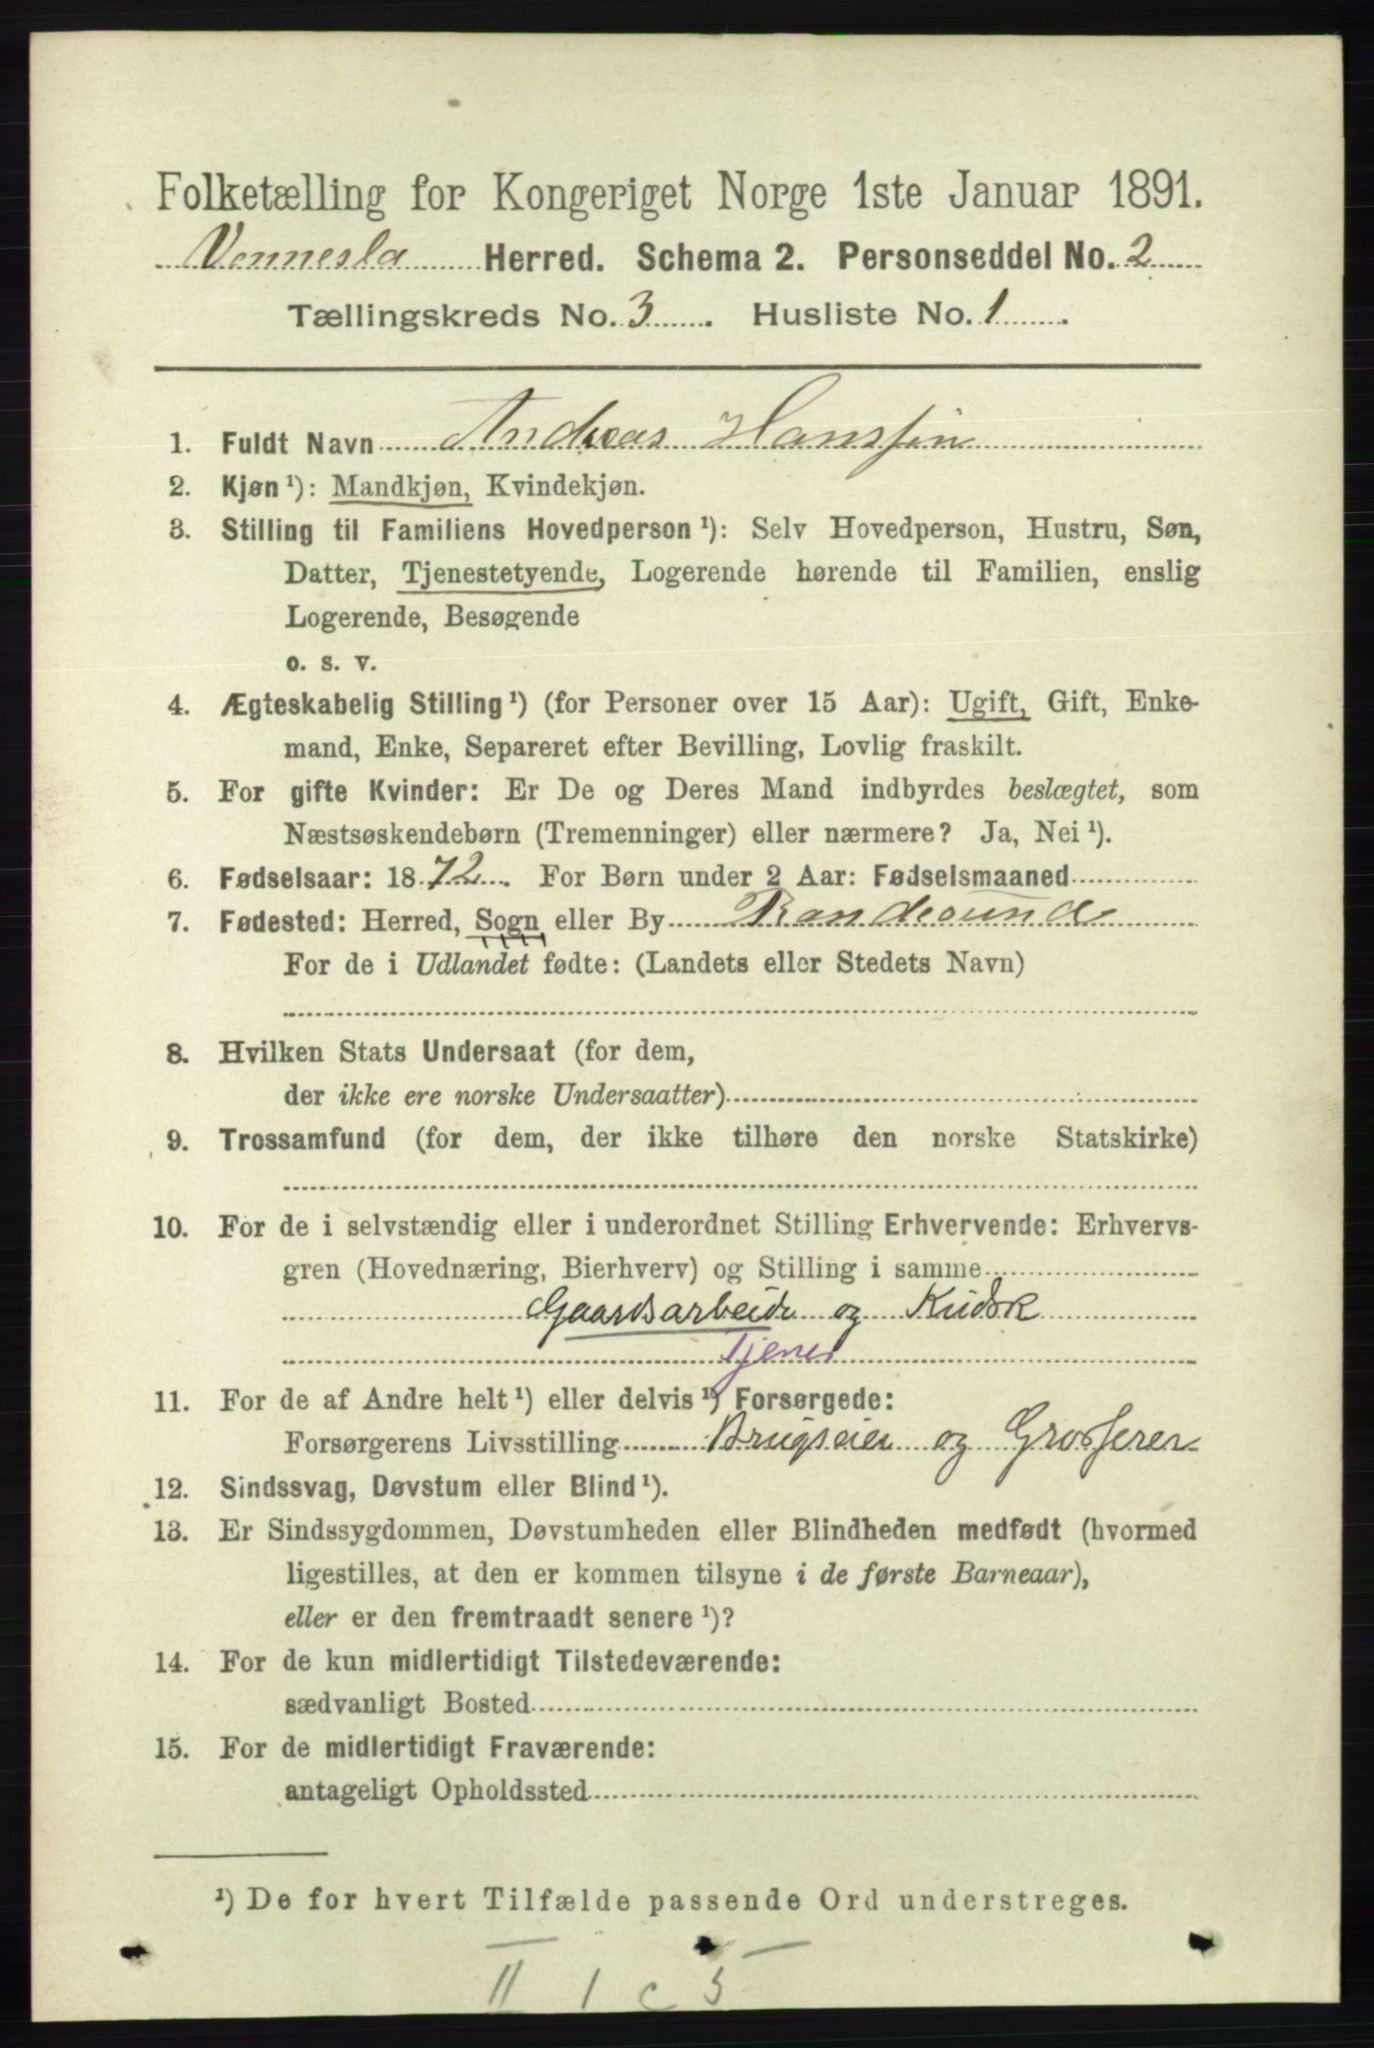 Folketælling for Kongeriget Norge 1ste Januar 1891.
Vennesla Herred. Schema 2. Personseddel No. 2
Tællingskreds No. 3 . Husliste No. 1 .
1. Fuldt Navn Andreas Hanssen
2. Kjøn ¹): Mandkjøn, Kvindekjøn.
3. Stilling til Familiens Hovedperson ¹): Selv Hovedperson, Hustru, Søn,
Datter, Tjenestetyende, Logerende hørende til Familien, enslig
Logerende, Besøgende
o. s. v.
4. Ægteskabelig Stilling ¹) (for Personer over 15 Aar): Ugift, Gift, Enke-
mand, Enke, Separeret efter Bevilling, Lovlig fraskilt.
5. For gifte Kvinder: Er De og Deres Mand indbyrdes beslægtet, som
Næstsøskendebørn (Tremenninger) eller nærmere? Ja, Nei ¹).
6. Fødselsaar: 1872. For Børn under 2 Aar: Fødselsmaaned
7. Fødested: Herred, Sogn eller By Randesund
For de i Udlandet fødte: (Landets eller Stedets Navn)
8. Hvilken Stats Undersaat (for dem,
der ikke ere norske Undersaatter)
9. Trossamfund (for dem, der ikke tilhøre den norske Statskirke)
10. For de i selvstændig eller i underordnet Stilling Erhvervende: Erhvervs-
gren (Hovednæring, Bierhverv) og Stilling i samme
Gaardsarbeide og Kudsk
Tjener
11. For de af Andre helt ¹) eller delvis ¹) Forsørgede:
Forsørgerens Livsstilling Brugseier og Grosserer
12. Sindssvag, Døvstum eller Blind ¹).
13. Er Sindssygdommen, Døvstumheden eller Blindheden medfødt (hvormed
ligestilles, at den er kommen tilsyne i de første Barneaar),
eller er den fremtraadt senere ¹)?
14. For de kun midlertidigt Tilstedeværende:
sædvanligt Bosted
15. For de midlertidigt Fraværende:
antageligt Opholdssted
¹) De for hvert Tilfælde passende Ord understreges.
II 1 c 5